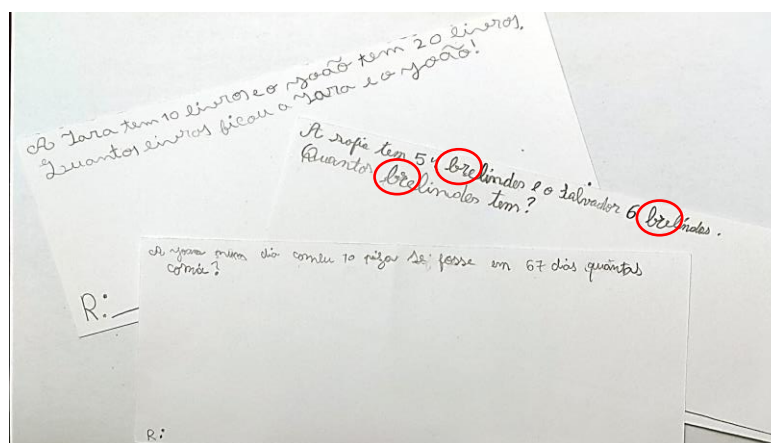 A Iara tem 10 livros e o João tem 20 livros.
Quantos livros ficou a Iara e o João!
R:
A sofia tem 5 brelindes e o Salvador 6 brelindes.
Quantos brelindes tem?
A num dia comeu 10 piza se fosse em 67 dias quantas
comia?
R: